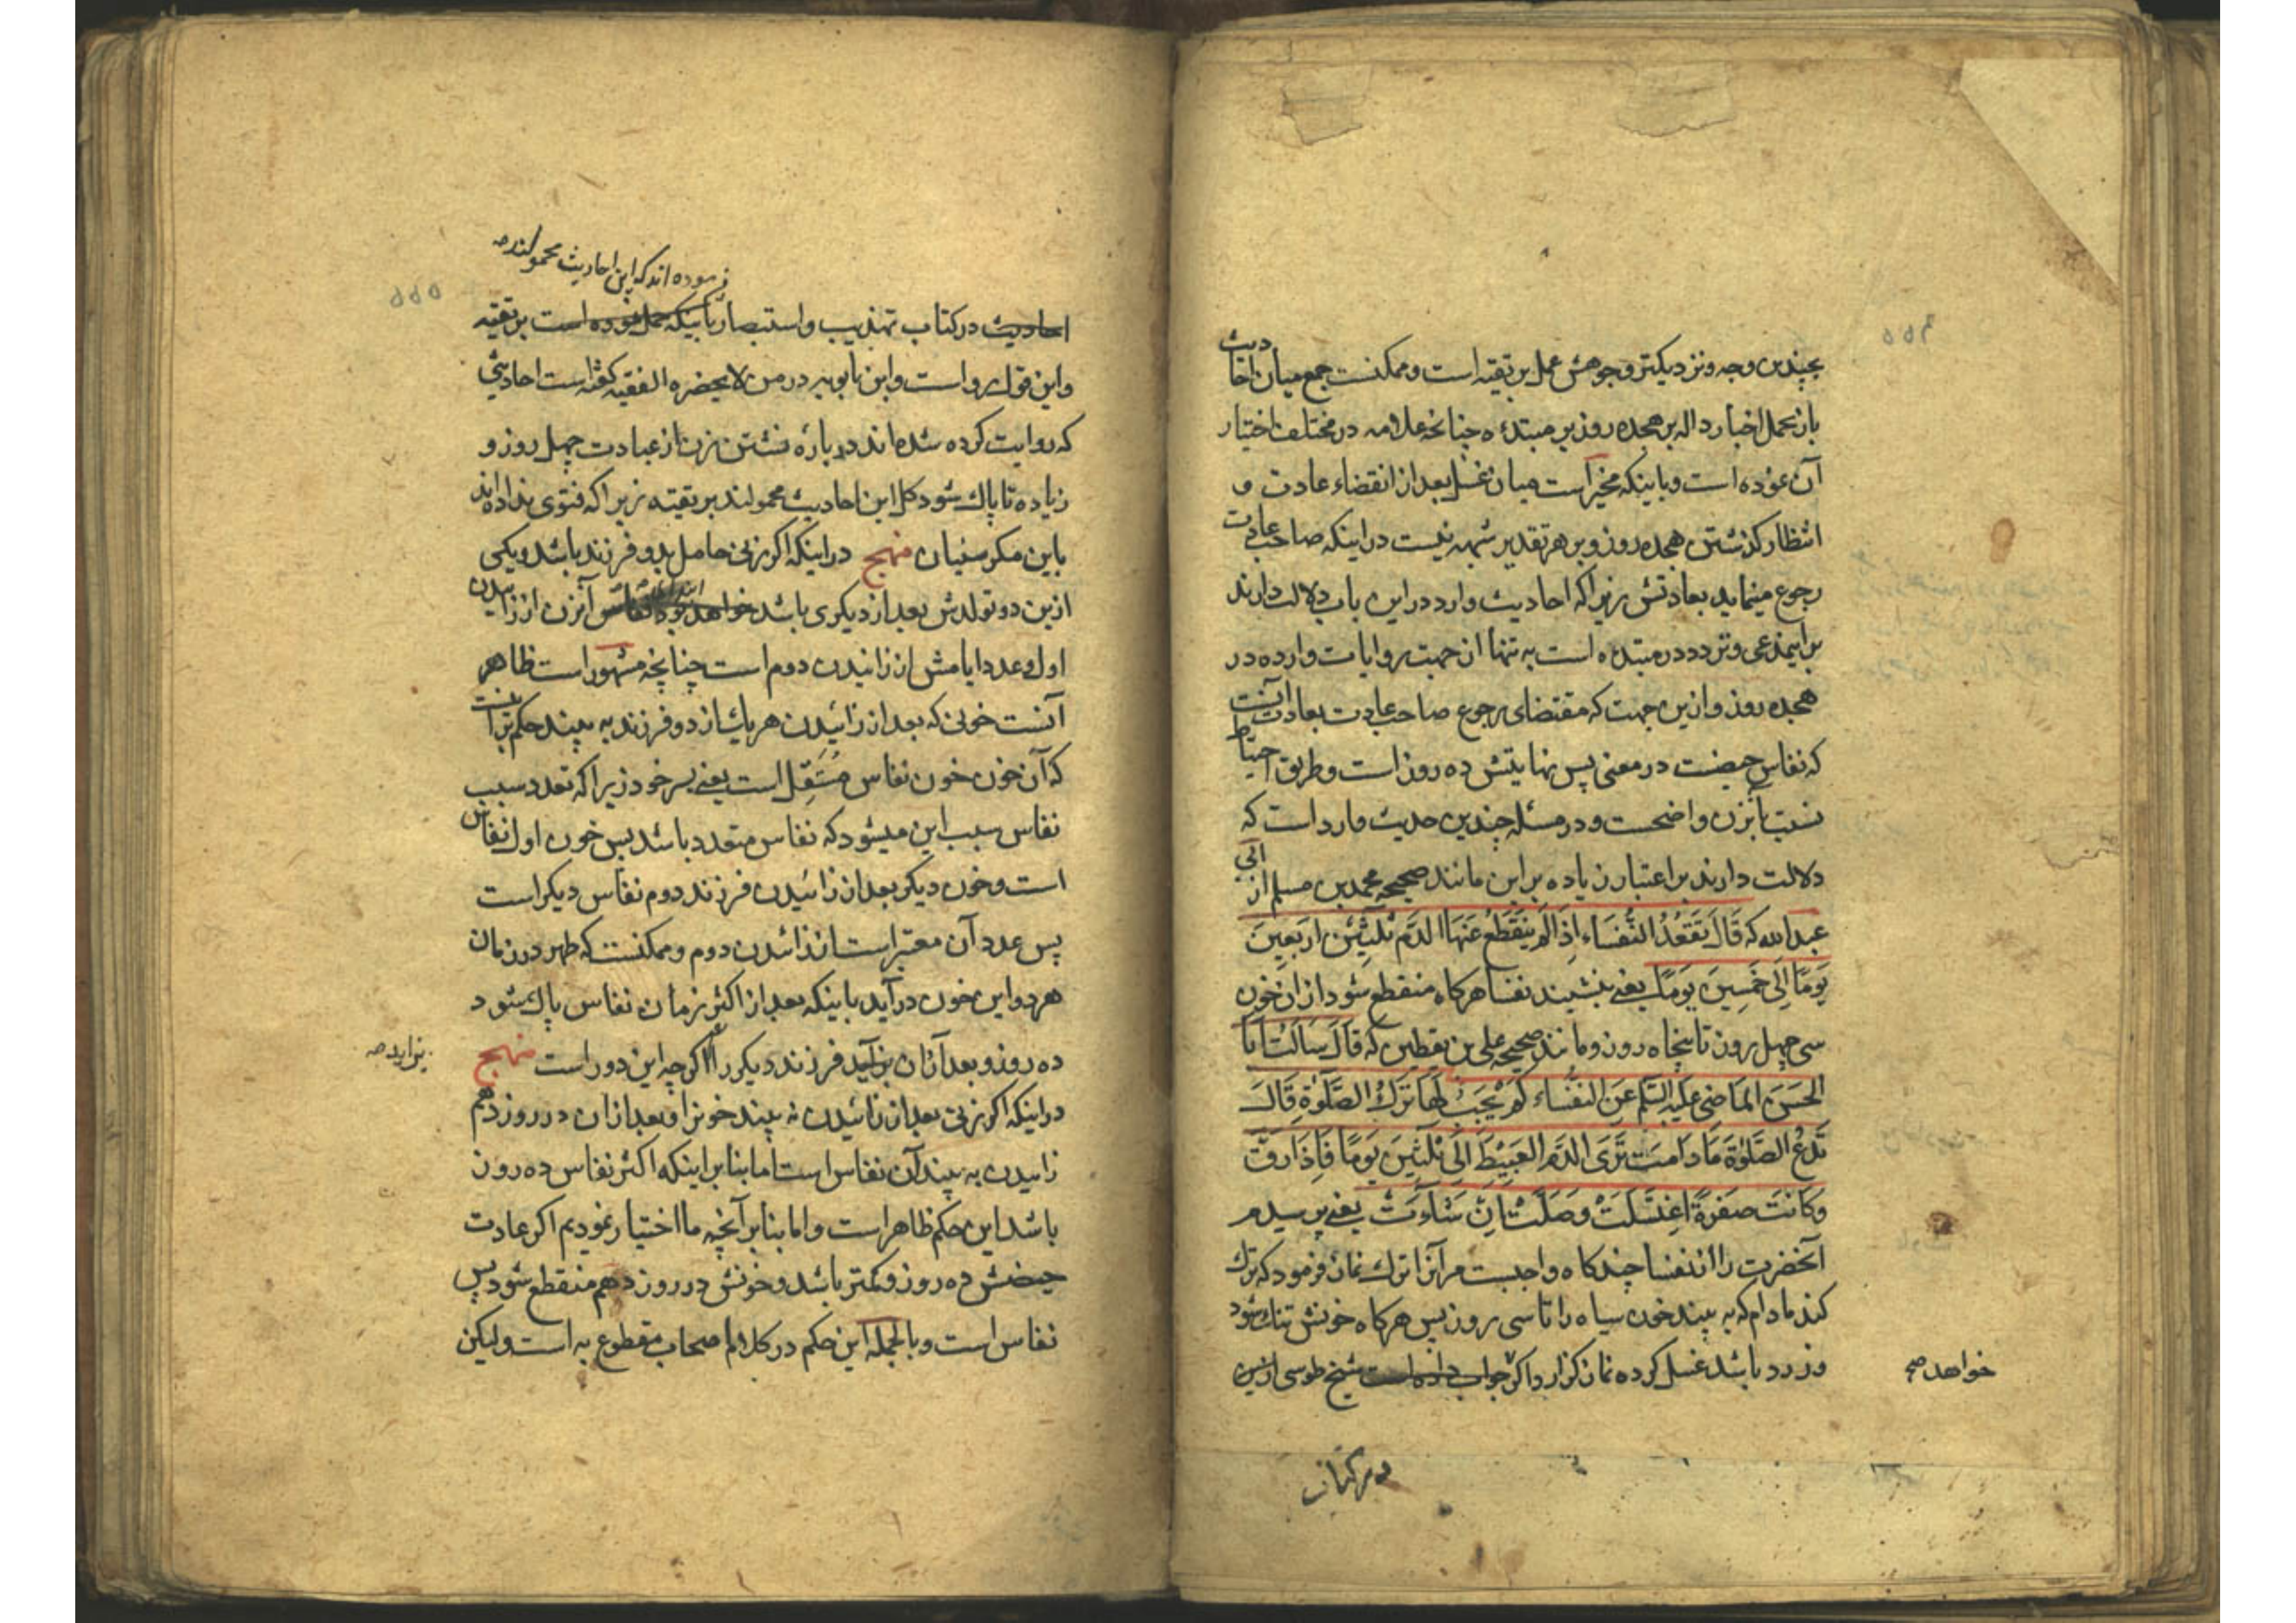 بچندین وجه ونزدیکتر وجوهش عمل بر تقیه است وممکنست جمع میان احادیث
باز بحمل اخبار داله بر هجده روز بر مبتدءه چنانچه علامه در مختلف اختیار
آن نموده است وباینکه مخیر است میان غسل بعد از انقضاء عادت و
انتظار کذشتن هجده روز وبر هر تقدیر شبهه نیست در اینکه صاحب عادت
رجوع مینماید بعادتش زیرا که احادیث وارد در این باب دلالت دارند
براینمدعی وتردد در مبتدءه است به تنها از جهت روایات وارده در
هجده روز وازین جهت که مقتضای رجوع صاحب عادت بعادت آنست
که نفاس حیضست در معنی پس نهایتش ده روز است وطریق احتیاط
نسبت بآنزن واضحست ودر مسئله چندین حدیث وارد است که
دلالت دارند بر اعتبار زیاده بر این مانند صحیحه محمد بن مسلم از ابی
عبدالله که قَالَ تَقْعُدُ النُّفَسَاء اِذَا لَم یَنْقَطِعْ عَنْهَا الدَّم ثَلٰثِین اَرْبَعِینَ
یَومًا اِلٰی خَمسِینَ یَومًا یعنی بنشیند نفسا هر کاه منقطع شود از ان خون
سی چهل روز تا پنجاه روز ومانند صحیحه علی بن یقطین که قَالَ سَاَلْتُ اَبَا
الحَسَنِ المَاضِی عَلَیْهِ السَّلَم عَنِ النُّفَسَاء کَم یَجِبُ لَهَا تَرْكُ الصَّلٰوةِ قَالَ
تَدَعُ الصَّلٰوةَ مَادَامَت تَرَی الدَّمَ العَبِیْطَ اِلٰی ثَلٰثِینَ یَومًا فَاِذَا رَقَّ
وَکَانَت صَفْرَةً اغتَسَلَتْ وَصَلَّتْ اِنْ شَاءَت یعنی پرسیدم
آنحضرت را از نفسا چند کاه واجبست مر آنرا ترك نماز فرمود که ترك
کند مادام که به بیند خون سیاه را تا سی روز پس هر کاه خونش تنك شود
وزرد باشد غسل کرده نماز کزارد اکر جواب داده است شیخ طوسی از این
خواهد صح
در کتاب
فرموده اند که این احادیث محمولند صه
احادیث در کتاب تهذیب واستبصار باینکه حمل نموده است بر تقیه
واین قول روا است وابن بابویه در من لایحضره الفقیه کفته است احادیثی
که روایت کرده شده اند در باره نشستن زن از عبادت چهل روز و
زیاده تا پاك شود کل این احادیث محمولند بر تقیه زیرا که فتوی نداده اند
باین مکر سنیان منهج در اینکه اکر زنی حامل بدو فرزند باشد ویکی
ازین دو تولدش بعد از دیکری باشد خواهد بود نفاس آنزن از زائیدن
اول وعدد ایامش از زائیدن دوم است چنانچه مشهور است ظاهر
آنست خونی که بعد از زائیدن هر یك از دو فرزند به بیند حکم بر آنست
که آن خون خون نفاس مُستَقِل است یعنی بسر خود زیرا که تعدد سبب
نفاس سبب این میشود که نفاس متعدد باشد پس خون اول نفاس
است وخون دیکر بعد از زائیدن فرزند دوم نفاس دیکر است
پس عدد آن معتبر است از زائیدن دوم وممکنست که طهر در زمان
هر دو این خون در آید باینکه بعد از اکثر زمان نفاس پاك شود
ده روز وبعد از ان بزاید فرزند دیکر را اکر چه این دور است منهج
بزاید صه
در اینکه اکر زنی بعد از زائیدن نه بیند خونرا وبعد از ان در روز دهم
زائیدن به بیند آن نفاس است اما بنا بر اینکه اکثر نفاس ده روز
باشد این حکم ظاهر است واما بنا بر آنچه ما اختیار نمودیم اکر عادت
حیضش ده روز وکمتر باشد وخونش در روز دهم منقطع شود پس
نفاس است وبالجمله این حکم در کل اصحاب مقطوع به است ولیکن